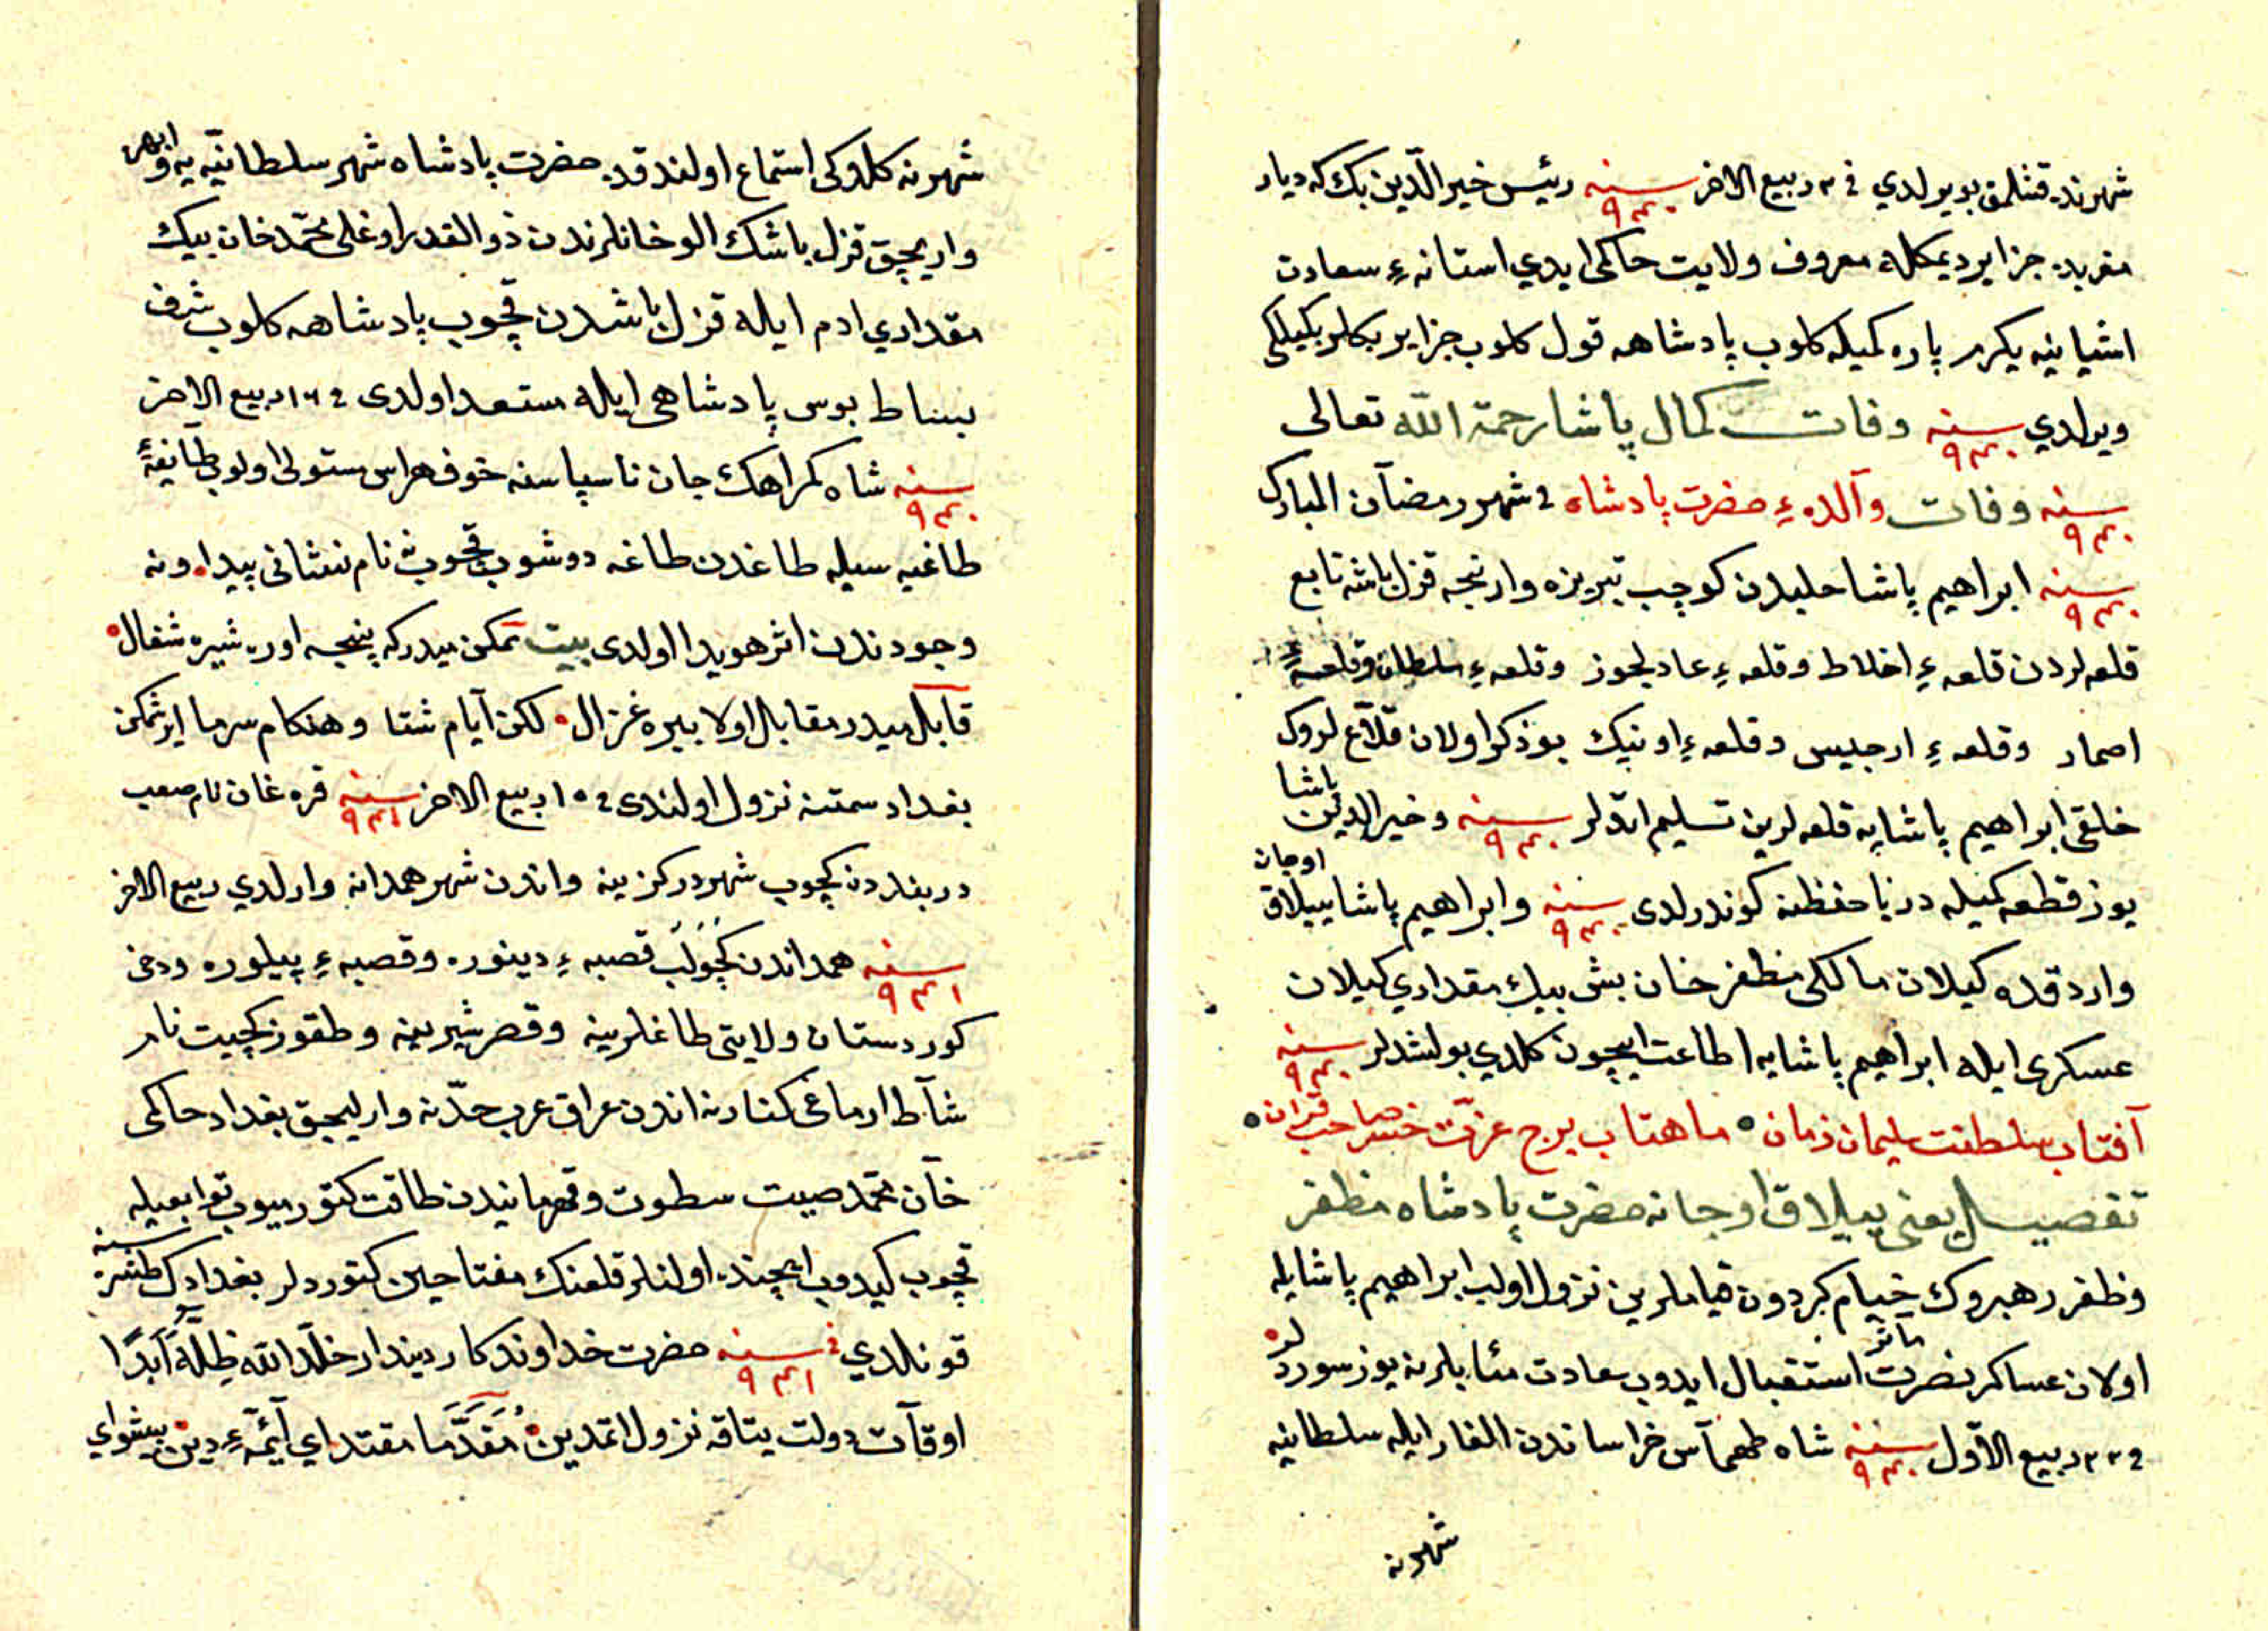 شهرنده قشلمق بویورلدی فی ۳ ربیع الاخر سنه ۹۴۰ رئیس خیر الدّین بك كه دیار
مغربده جزایر دیمكله معروف ولایت حاكمی ایدی استانهٔ سعادت
اشیانینه یكرمی پاره كمیله كلوب پادشاهه قول كلوب جزایر بكلربكیلكی
ویرلدی سنه ۹۴۰ وفات كمال پاشا رحمة الله تعالی
سنه ۹۴۰ وفات والدهٔ حضرت پادشاه فی شهر رمضان المبارك
سنه ۹۴۰ ابراهیم پاشا حلبدن كوچب تبریزه وارنجه قزل باشه تابع
قلعه لردن قلعهٔ اخلاط وقلعهٔ عادلجوز وقلعهٔ سلطان وقلعهٔ
اصمار وقلعهٔ ارجیس وقلعهٔ اونیك بو ذكر اولان قلاع لروك
خلقی ابراهیم پاشایه قلعه لرین تسلیم اتدلر سنه ۹۴۰ وخیر الدین پاشا
یوز قطعه كمیله دریا حفظنه كوندرلدی سنه ۹۴۰ وابراهیم پاشا ییلاق اوجان
واردقده كیلان مالكی مظفر خان بش بیك مقداری كیلان
عسكری ایله ابراهیم پاشایه اطاعت ایچون كلدی بولشدلر سنه ۹۴۰
آفتاب سلطنت سلیمان زمان ماهتاب برج عزّت خسرو صاحب قران
تفصیل یعنی ییلاق اوجانه حضرت پادشاه مظفر
وظفر رهبروك خیام كردون قیاملرین نزول اولب ابراهیم پاشایله
اولان عساكر نصرت ماثر استقبال ایدوب سعادت مئابلرنه یوز سوردلر
فی ۲۳ ربیع الاوّل سنه ۹۴۰ شاه طهماس خراساندن الغار ایله سلطانیه
شهرنه
شهرنه كلدوكی استماع اولندقده حضرت پادشاه شهر سلطانیّه یه وابهره
واریجق قزل باشك الو خانلرندن ذو القدر اوغلی محمّد خان بیك
مقداری ادم ایله قزل باشدن قچوب پادشاهه كلوب شرف
بساط بوس پادشاهی ایله مستعد اولدی فی ۱۶ ربیع الاخر
سنه ۹۴۰ شاه كمراهك جان ناسپاسنه خوف هراس مستولی اولوب طایفهٔ
طاغیه سیله طاغدن طاغه دوشوب قچوب نام نشانی پیدا ونه
وجودندن اثر هویدا اولدی بیت ممكن میدر كه پنجه اوره شیره شغال
قابل میدر مقابل اولا ببره غزال لكن آیام شتا وهنكام سرما ایرشمكن
بغداد سمتنه نزول اولندی فی ۱۵ ربیع الاخر سنه ۹۴۱ قره غان نام صعب
دربنددن كچوب شهر دركزینه واندن شهر همدانه وارلدی ربیع الاخر
سنه ۹۴۱ همداندن كچولب قصبهٔ دینوره وقصبهٔ پیلوره ودخی
كوردستان ولایتی طاغلرینه وقصر شیرینه وطقوز كچیت نام
شاط ارماغی كنارنه اندن عراق عرب حدّنه واریلیجق بغداد حاكمی
خان محمّد صیت سطوت وقهرمانیدن طاقت كتورمیوب توابعیله
قچوب كیدوب ایچنده اولنلر قلعنك مفتاحین كتوردلر بغدادك طشره سنه
قونلدی فی سنه ۹۴۱ حضرت خداوندكار دیندار خلّد الله ظلّه ابدًا
اوقات دولت یتاقه نزول اتمدین مقدّما مقتدای آئمّهٔ دین پیشوای